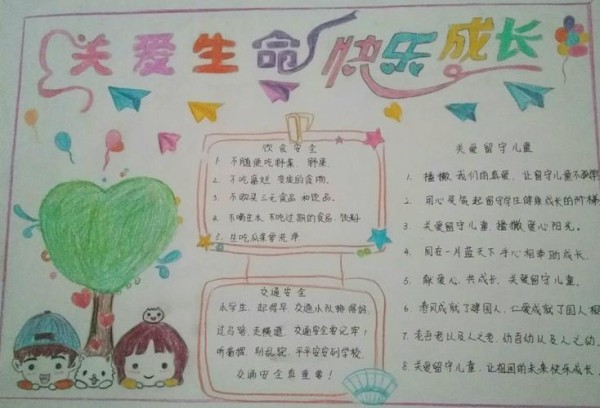 关爱生命 快乐成长
饮食安全
1. 不随便吃野菜、野果。
2. 不吃腐烂、变质的食物。
3. 不购买三无食品和饮品。
4. 不喝生水,不吃过期的食品、饮料
5. 生吃瓜果要洗净
交通安全
小学生,起得早,交通小队排得好。
过马路,走横道,交通安全要记牢!
听着哨,别乱跑,平平安安到学校,
交通安全真重要!
关爱留守儿童
1. 播撒我们的真爱,让留守儿童不孤单
2. 用心是筑起留守学生健康成长的阶梯
3. 关爱留守儿童,播撒爱心阳光。
4. 同在一片蓝天下,手心相牵助成长。
5. 献爱心,共成长,关爱留守儿童。
6. 春风成就了建国人,仁爱成就了国人根
7. 老吾老以及人之老,幼吾幼以及人之幼。
8. 关爱留守儿童,让祖国的未来快乐成长。